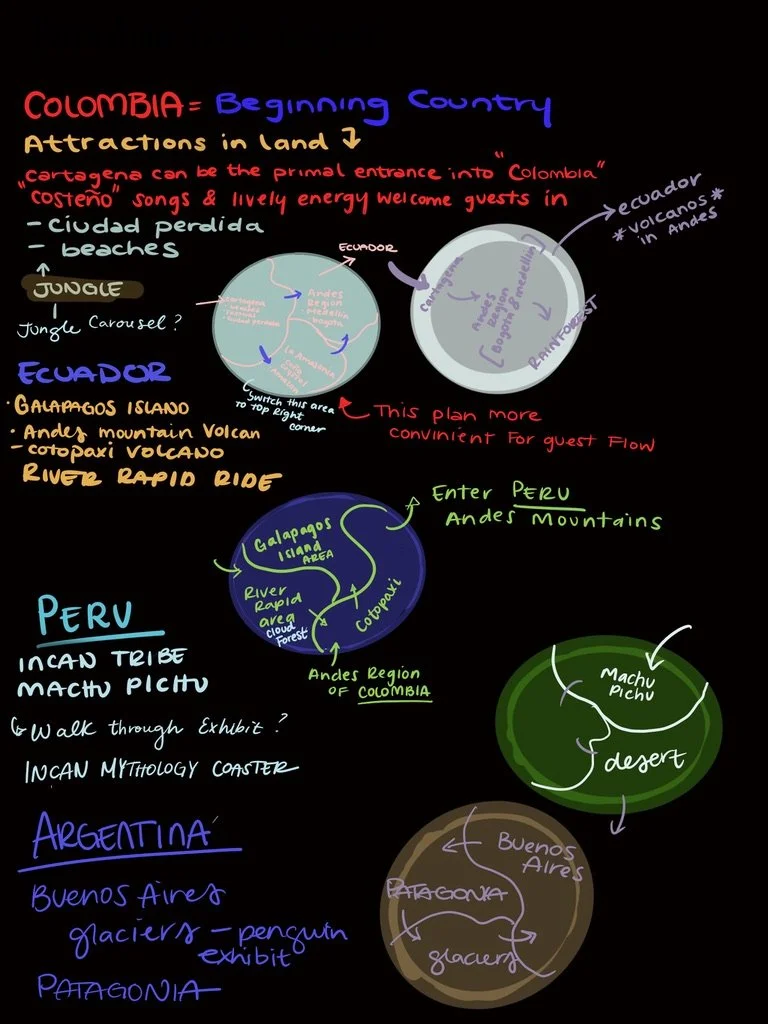 COLOMBIA = Beginning Country
Attractions in land
"cartagena can be the primal entrance into "Colombia"
"costeño" songs & lively energy welcome guests in
- ciudad perdida
- beaches
JUNGLE
Jungle Carousel?
ECUADOR
cartagena
ciudad perdida
Andes
Region
- Medellin
bogota
La Amazonia
Amazon
(Switch this area
to top right
corner
Cartagena
Andes
Region
(Bogota & medellin)
RAINFOREST
ecuador
*volcanos*
in Andes
This plan more
convinient for guest flow
ECUADOR
· GALAPAGOS ISLAND
· Andes mountain Volcan
- cotopaxi VOLCANO
RIVER RAPID RIDE
Galapagos
Island
AREA
River
Rapid
area
Cloud
Forest
Cotopaxi
Enter PERU
Andes Mountains
Andes Region
OF COLOMBIA
PERU
INCAN TRIBE
MACHU PICHU
Walk through Exhibit?
INCAN MYTHOLOGY COASTER
Machu
Pichu
desert
ARGENTINA
Buenos Aires
glaciers - penguin
exhibit
PATAGONIA
Buenos
Aires
PATAGONIA
glaciers